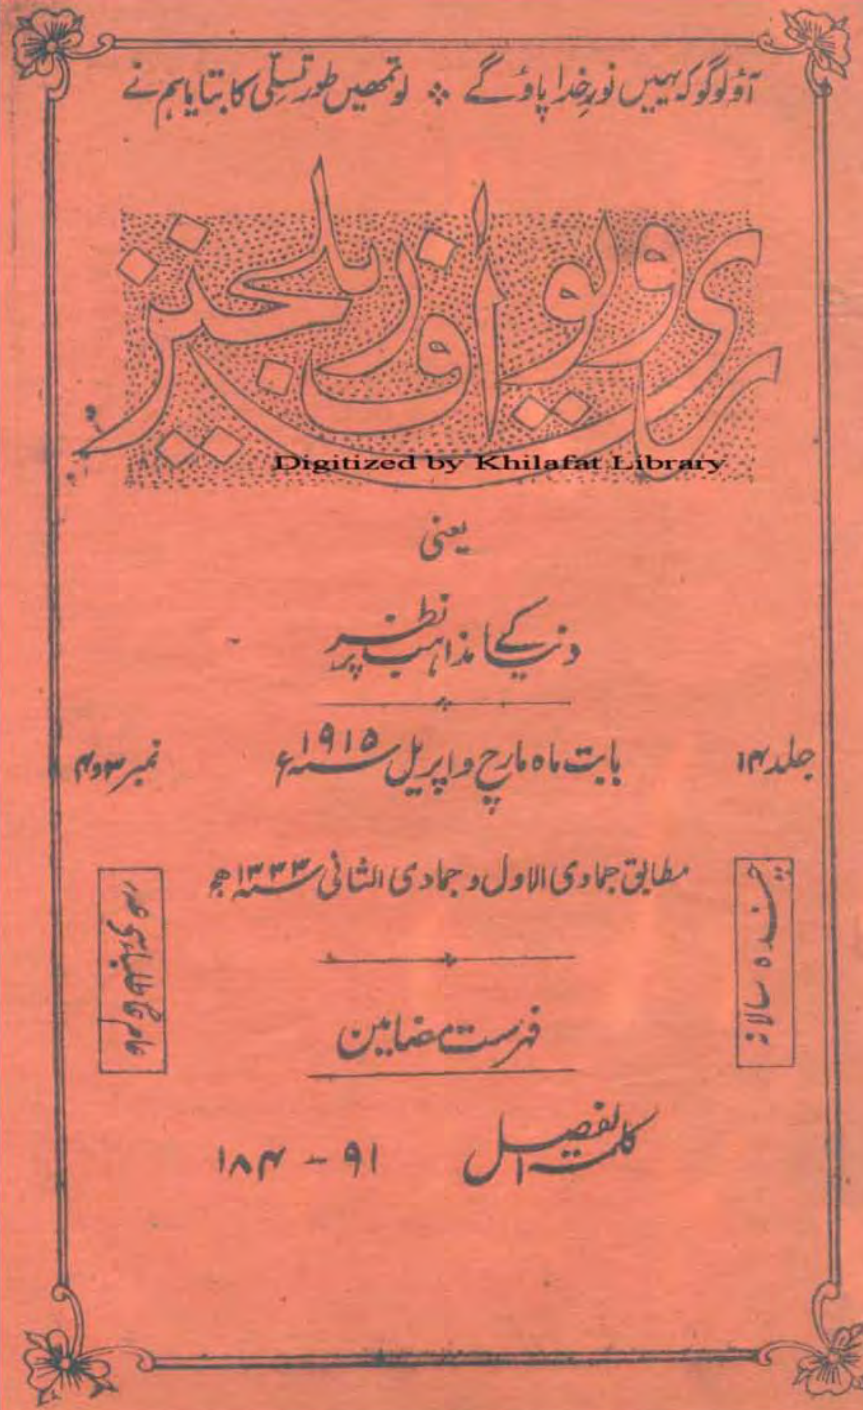 آؤ لوگو کہ یہیں نورِ خدا پاؤ گے ⁘ لو تمھیں طور تسلّی کا بتایا ہم نے
ریویو اوف ریلیجنز
Digitized by Khilafat Library
یعنی
دنیا کے مذاہب پر نظر
جلد ۱۴
بابت ماہ مارچ و اپریل سنہ ۱۹۱۵ء
نمبر ۳ و ۴
مطابق جمادی الاول و جمادی الثانی سنہ ۱۳۳۳ھ
چندہ سالانہ
فہرست مضامین
کلمۃ الفصل ۹۱ - ۱۸۴